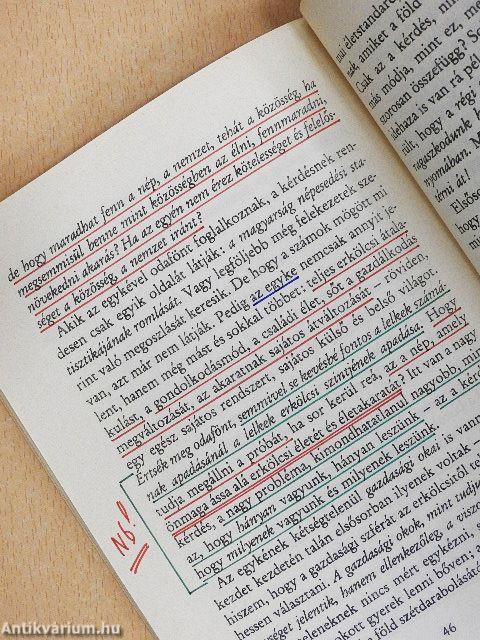 de hogy maradhat fenn a nép, a nemzet, tehát a közösség, ha
megsemmisül benne mint közösségben az élni, fennmaradni,
növekedni akarás? Ha az egyén nem érez kötelességet és felelős-
séget a közösség, a nemzet iránt?
Akik az egykével odafönt foglalkoznak, a kérdésnek ren-
desen csak egyik oldalát látják: a magyarság népesedési sta-
tisztikájának romlását. Vagy legföljebb még felekezetek sze-
rint való megoszlását keresik. De hogy a számok mögött mi
van, azt már nem látják. Pedig az egyke nemcsak annyit je-
lent, hanem még mást és sokkal többet: teljes erkölcsi átala-
kulást, a gondolkodásmód, a családi élet, sőt a gazdálkodás
megváltozását, az akaratnak sajátos átváltozását – röviden,
egy egész sajátos rendszert, sajátos külső és belső világot.
Értsék meg odafönt, semmivel se kevésbé fontos a lelkek számá-
nak apadásánál a lelkek erkölcsi szintjének apadása. Hogy
tudja megállni a próbát, ha sor kerül reá, az a nép, amely
önmaga ássa alá erkölcsi életét és életakaratát? Itt van a nagy
kérdés, a nagy probléma, kimondhatatlanul nagyobb, mint
az, hogy hányan vagyunk, hányan leszünk – az a kérdés,
hogy milyenek vagyunk és milyenek leszünk.
Az egykének kétségtelenül gazdasági okai is vannak
kezdet kezdetén talán elsősorban ilyenek voltak
hiszem, hogy a gazdasági szférát az erkölcsitől
bessen választani. A gazdasági okok, mint tudjuk
séget jelentik, hanem ellenkezőleg, a
nincs mért egykézni,
gyerek lenni bőven;
föld szétdarabolását
46
NB!
mai életstandard
amiket a föld
Csak az a kérdés, nin
más módja, mint ez, m
gorosan összefügg? So
van rá pél
ült, hogy a régi
nyomában. M
írni át!
Elsőso
hogy
Antikvárium.hu